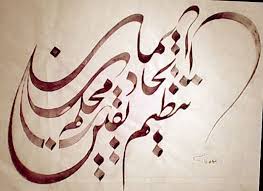 ایمان
اتحاد
تنظیم
یقین محکم